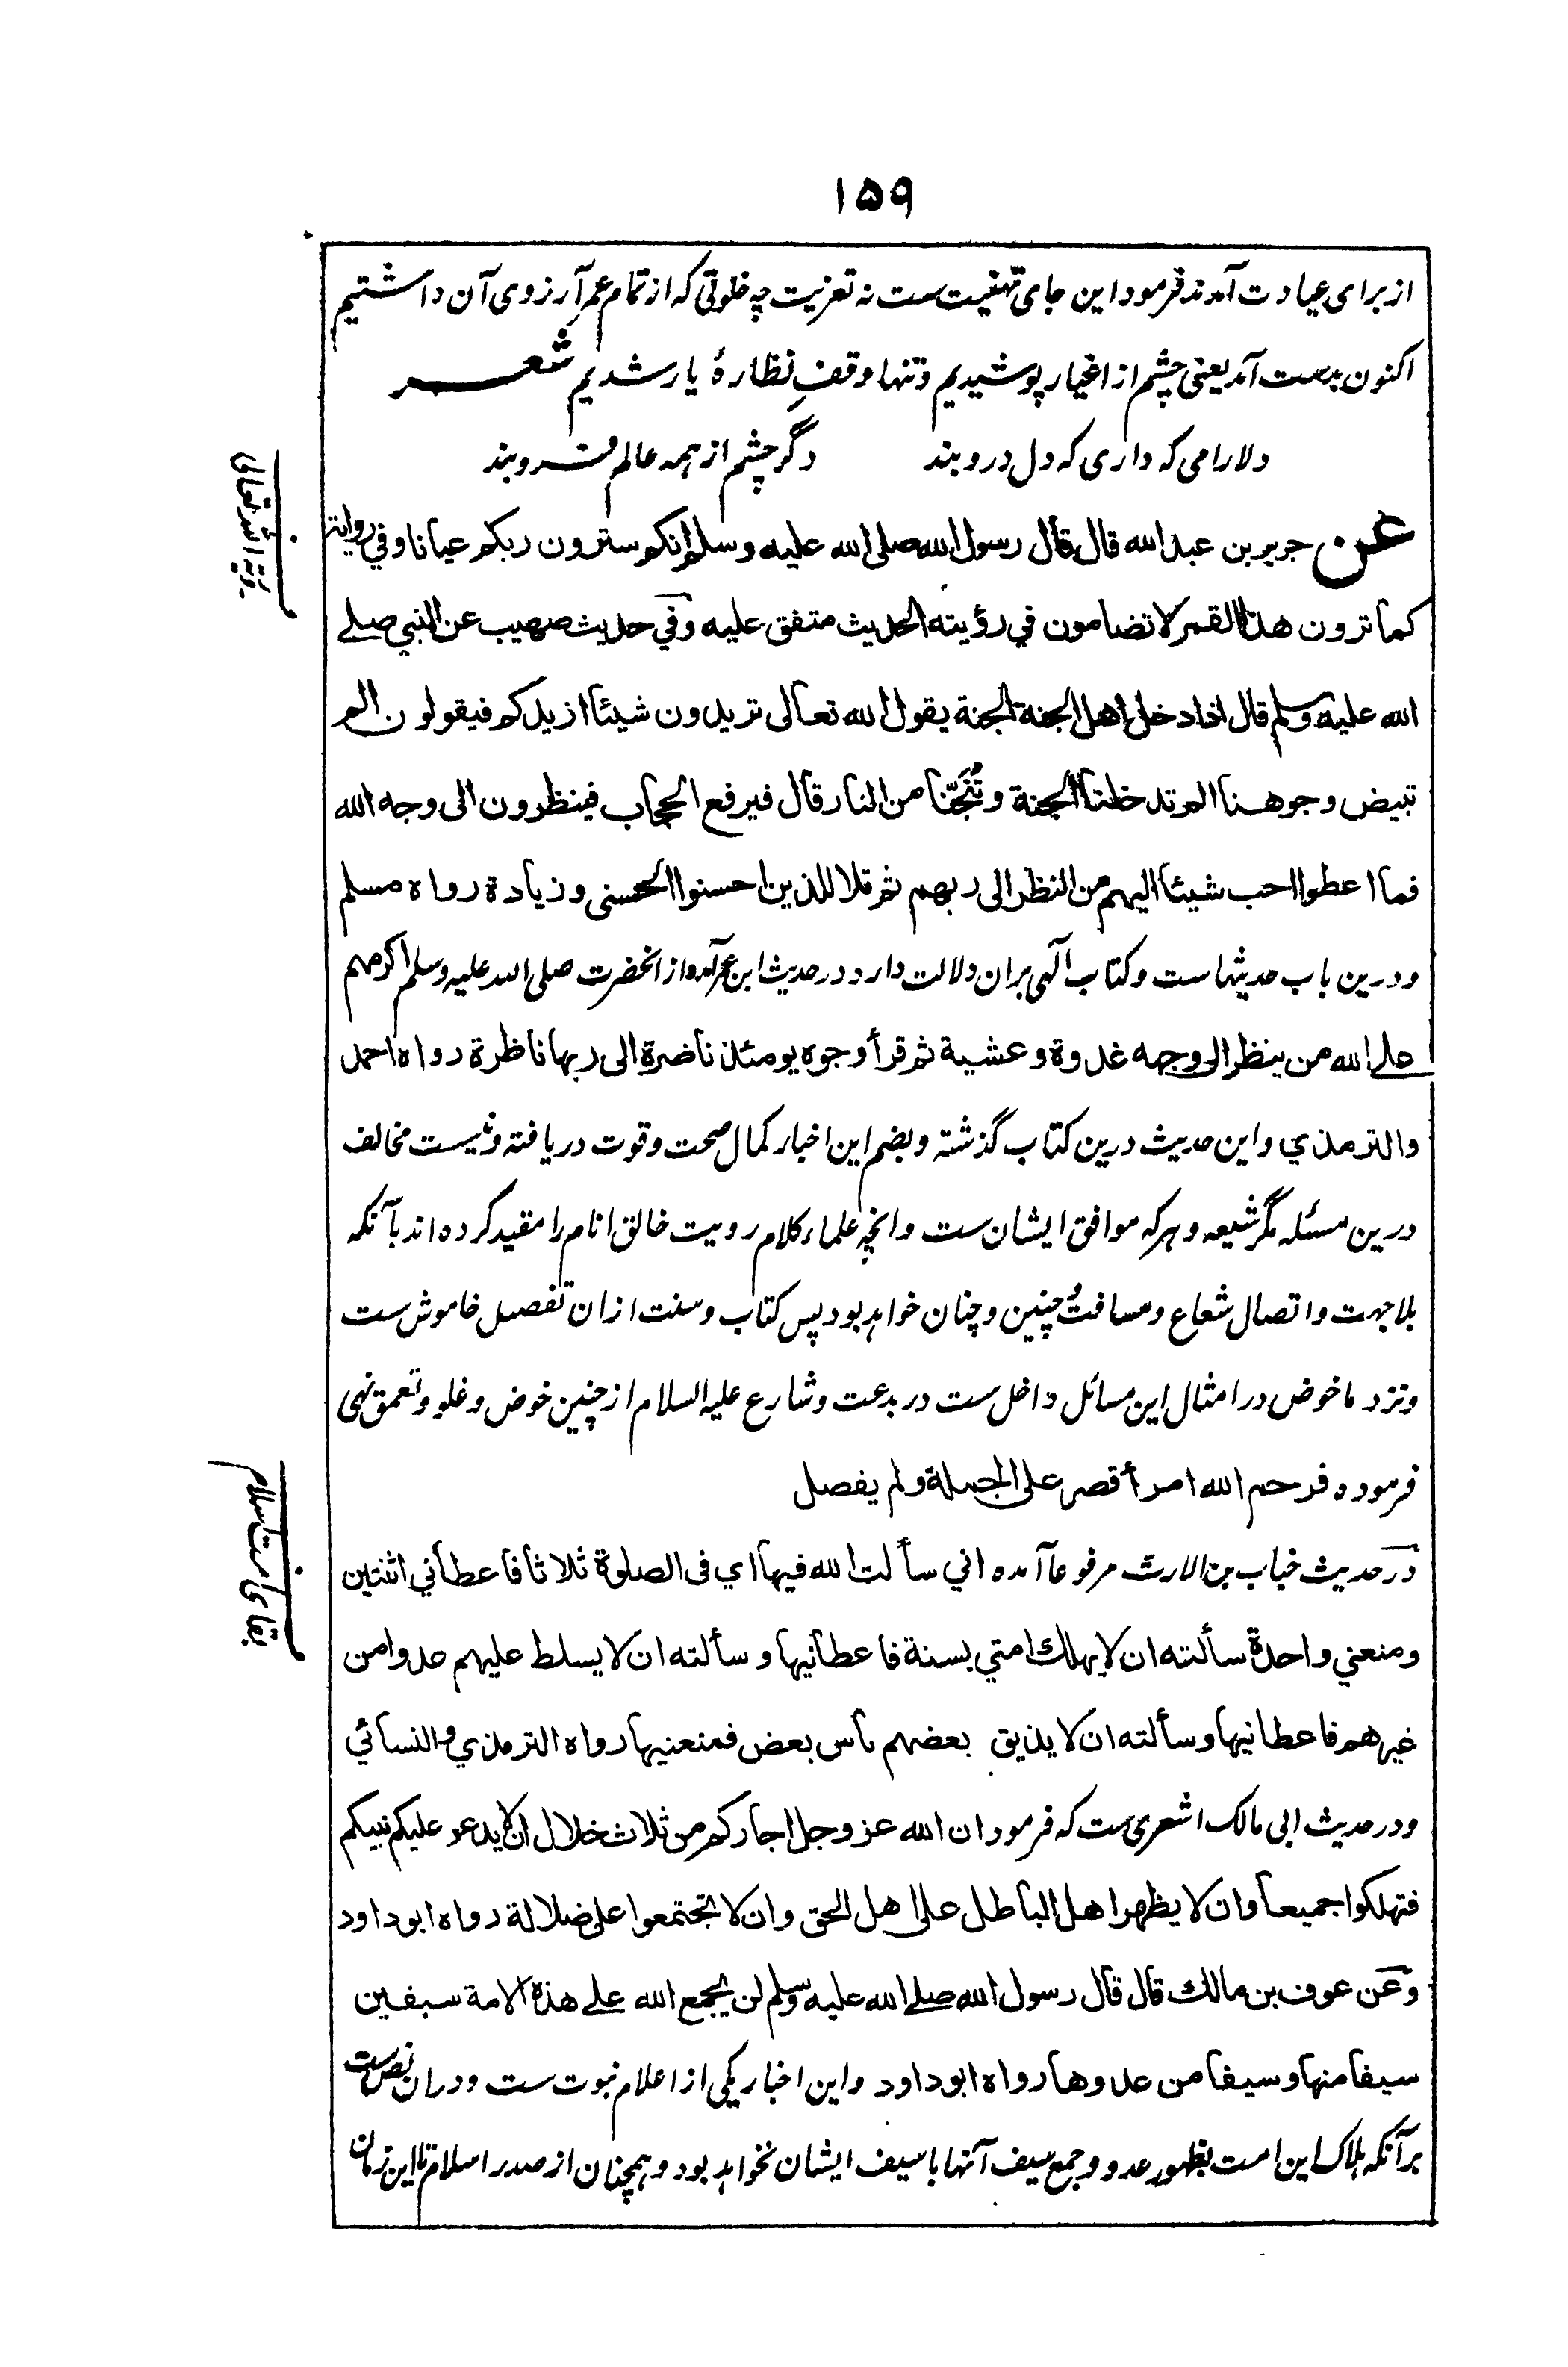 ۱۵۹
از برای عیادت آمدند فرمود این جای تهنیت ست نه تعزیت چه خلوتی که از تمام عمر آرزوی آن داشتیم
اکنون بدست آمد یعنی چشم از اغیار پوشیدیم و تنها وقفِ نظارهٔ یار شدیم شعر
دلارامی که داری که دل در و بند دگر چشم از همه عالم فرو بند
رؤیة الله تعالی
عن جریر بن عبد الله قال قال رسول الله صلی الله علیه وسلم انکم سترون ربکم عیانا وفي روایة
کما ترون هذا القمر لا تضامون في رؤیته الحدیث متفق علیه وفي حدیث صهیب عن النبي صلے
الله علیه وسلم قال اذا دخل اهل الجنة الجنة یقول الله تعالی تریدون شیئا ازیدکم فیقولون الم
تبیض وجوهنا الم تدخلنا الجنة وتُنَجِّنا من النار قال فیرفع الحجاب فینظرون الی وجه الله
فما اعطوا احب شیئا الیهم من النظر الی ربهم ثم تلا للذین احسنوا الحسنی وزیادة رواه مسلم
ودرین باب حدیثهاست وکتاب آلهی بران دلالت دارد در حدیث ابن عمر آمده از انحضرت صلی الله علیه وسلم اکرمهم
علے الله من ینظر الی وجهه غدوة وعشیة ثم قرأ وجوه یومئذ ناضرة الی ربها ناظرة رواه احمد
والترمذي واین حدیث درین کتاب گذشته وبضم این اخبار کمال صحت وقوت دریافته ونیست مخالف
درین مسئله مگر شیعه وهر که موافق ایشان ست وانچه علماء کلام رویت خالق انام را مقید کرده اند بآنکه
بلا جهت واتصال شعاع ومسافت چنین وچنان خواهد بود پس کتاب وسنت ازان تفصیل خاموش ست
ونزد ما خوض در امثال این مسائل داخل ست در بدعت وشارع علیه السلام از چنین خوض وغلو وتعمق نهی
فرموده فرحم الله امرأ قصر علی الجملة ولم یفصل
بقای امت اسلام
در حدیث خباب بن الارت مرفوعا آمده اني سألت الله فیها اي فی الصلوة ثلاثا فاعطاني اثنتین
ومنعني واحدة سألته ان لا یهلك امتي بسنة فاعطانیها وسألته ان لا یسلط علیهم عدوا من
غیرهم فاعطانیها وسألته ان لا یذیق بعضهم باس بعض فمنعنیها رواه الترمذي والنسائي
ودر حدیث ابی مالک اشعری ست که فرمود ان الله عز وجل اجارکم من ثلاث خلال ان لا یدعو علیکم نبیکم
فتهلکوا جمیعا وان لا یظهر اهل الباطل علی اهل الحق وان لا تجتمعوا علی ضلالة رواه ابو داود
وعن عوف بن مالك قال قال رسول الله صلے الله علیه وسلم لن یجمع الله علے هذه الامة سیفین
سیفا منها وسیفا من عدوها رواه ابو داود واین اخبار یکی از اعلام نبوت ست ودران نص ست
برآنکه هلاک این امت بظهور عدو وجمع سیف آنها با سیف ایشان نخواهد بود وهمچنان از صدر اسلام تا این زمان